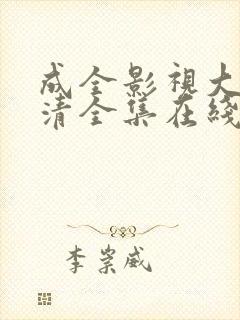 成全影視大
清全集在綫
李崇威